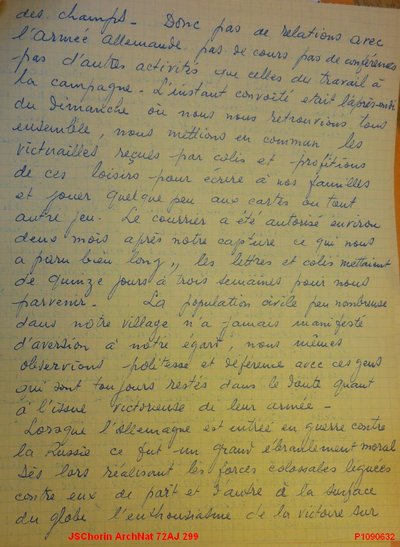 des champs - Donc pas de relations avec
l'Armée allemande pas de cours pas de conférences
pas d'autres activités que celles du travail à
la campagne - L'instant convoité était l'après-midi
du Dimanche où nous nous retrouvions tous
ensemble, nous mettions en commun les
victuailles reçues par colis et profitions
de ces loisirs pour écrire à nos familles
et jouer quelque peu aux cartes ou tout
autre jeu. Le courrier a été autorisé environ
deux mois après notre capture ce qui nous
a paru bien long, les lettres et colis mettaient
de quinze jours à trois semaines pour nous
parvenir. La population civile peu nombreuse
dans notre village n'a jamais manifesté
d'aversion à notre égart, nous mêmes
observions politesse et déférence avec ces gens
qui sont toujours restés dans le doute quant
à l'issue victorieuse de leur armée -
Lorsque l'Allemagne est entrée en guerre contre
la Russie ce fut un grand ébranlement moral
Dès lors réalisant les forces colossales liguées
contre eux de part et d'autre à la surface
du globe l'enthousiasme de la victoire sur
JSChorin ArchNat 72AJ 299
P1090632